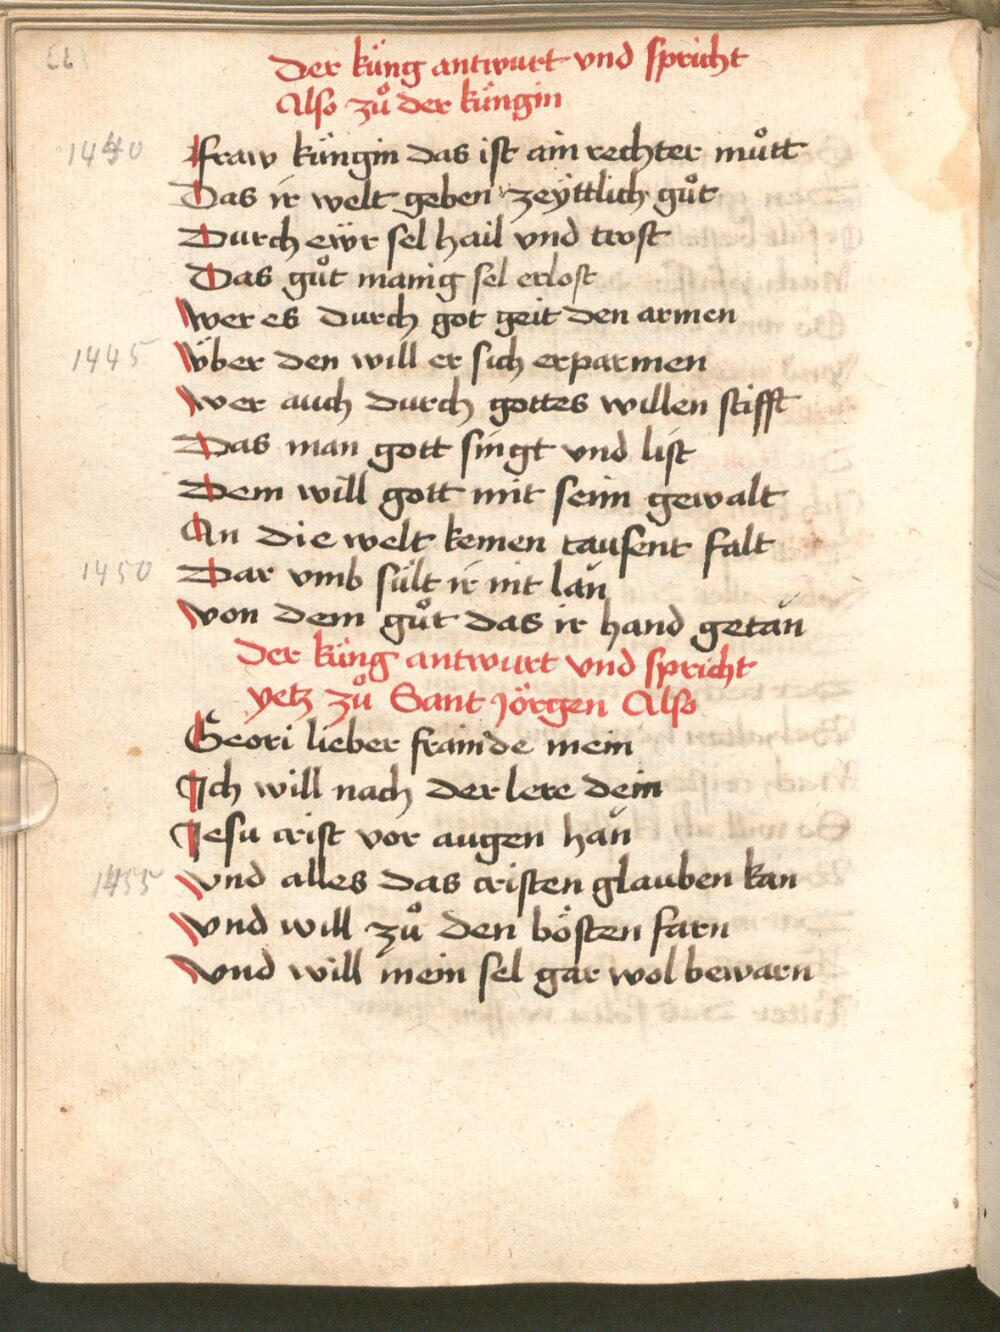 Der küng antwurt vnd spricht
Also zů der küngin
1440 ffraw küngin das ist ain rechter můtt
Das ir welt geben zeÿttlich gůt
Durch ewr sel hail vnd trost
Das gůt manig sel erlost
Wer es durch got geit den armen
1445 Vber den will er sich erparmen
Wer auch durch gottes willen stifft
Das man gott singt vnd list
Dem will gott mit seim gewalt
An die welt kemen tausent falt
1450 Dar vmb sült ir nit lan
Von dem gůt das ir hand getan
Der küng antwurt vnd spricht
yetz zů Sant Jörgen Also
Geori lieber frainde mein
Ich will nach der lere dein
Jesu crist vor augen han
1455 Vnd alles das cristen glauben kan
Vnd will zů den bösten farn
Vnd will mein sel gar wol bewarn